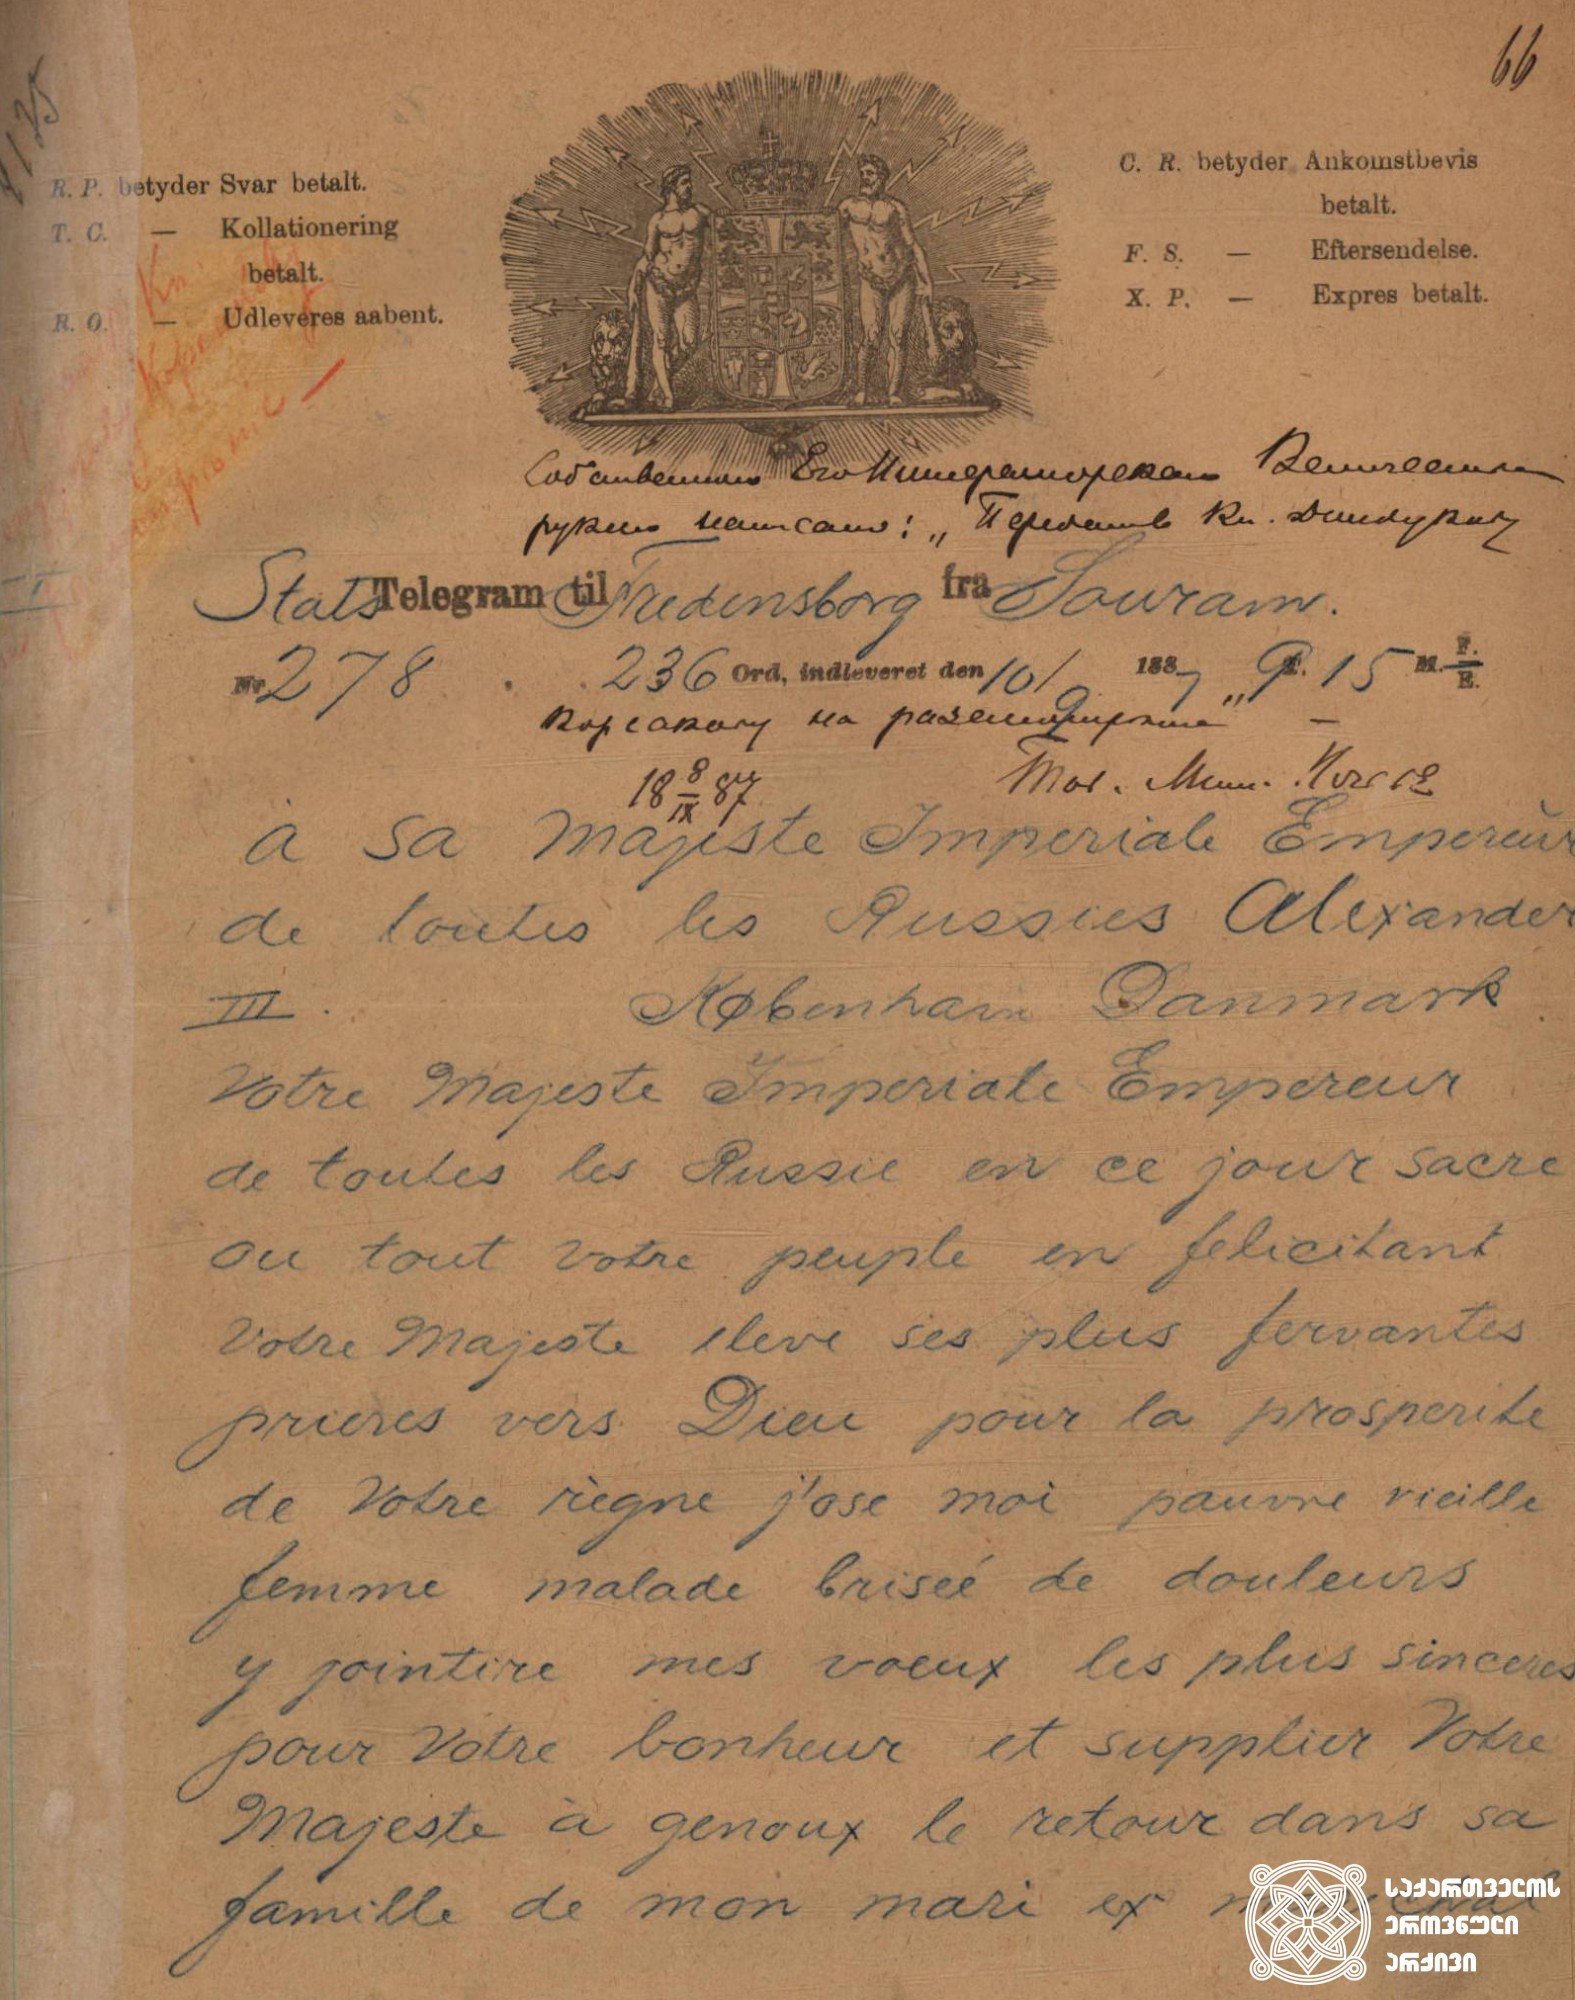 66
1125
R. P. betyder Svar betalt.
T. C. — Kollationering
betalt.
R. O. — Udleveres aabent.
C. R. betyder Ankomstbevis
betalt.
F. S. — Eftersendelse.
X. P. — Expres betalt.
Собственною Его Императорскаго Величества
рукою написано: „Передать Кн. Дондукову
Stats Telegram til Fredensborg fra Souram.
Nr. 278 236 Ord, indleveret den 10/9 1887 9 T. 15 M. F./E.
Корсакову на разсмотрѣніе" —
18 8/IX 87
Тов. Мин.
a sa Majeste Imperiale Empereur
de toutes les Russies Alexander
III. København Danmark.
Votre Majeste Imperiale Empereur
de toutes les Russie en ce jour sacre
ou tout votre peuple en felicitant
Votre Majeste eleve ses plus fervantes
prieres vers Dieu pour la prosperite
de Votre règne j'ose moi pauvre vieille
femme malade briseé de douleurs
y jointire mes voeux les plus sinceres
pour Votre bonheur et supplier Votre
Majeste à genoux le retour dans sa
famille de mon mari ex
საქართველოს
ეროვნული
არქივი